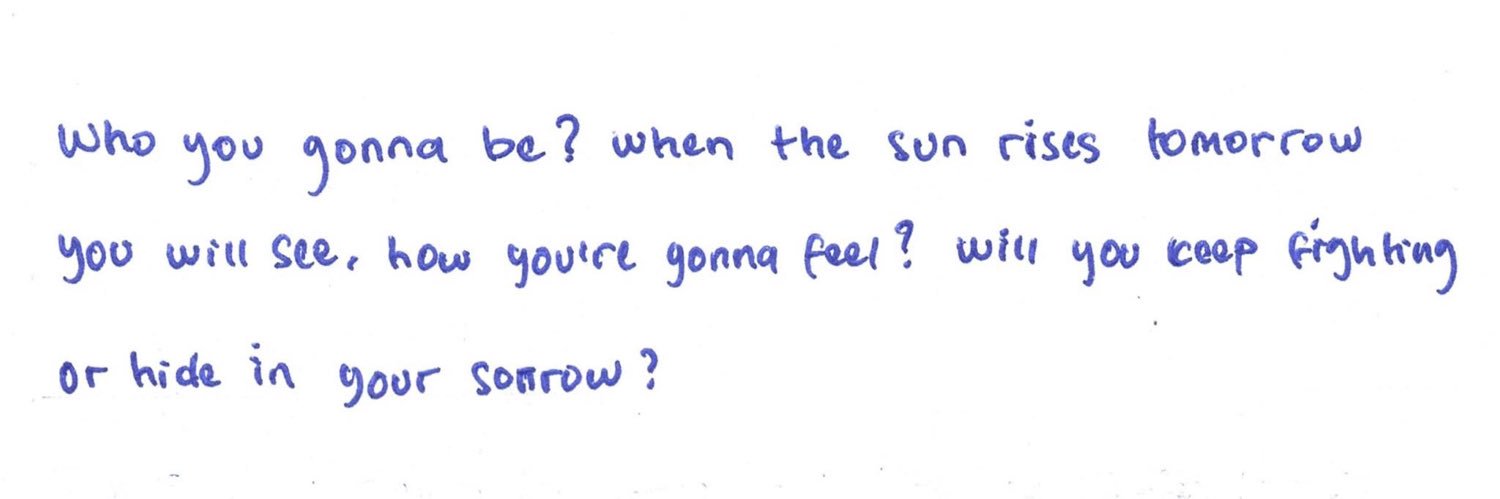 Who you gonna be? when the sun rises tomorrow
you will see, how you're gonna feel? will you keep fighting
or hide in your sorrow?